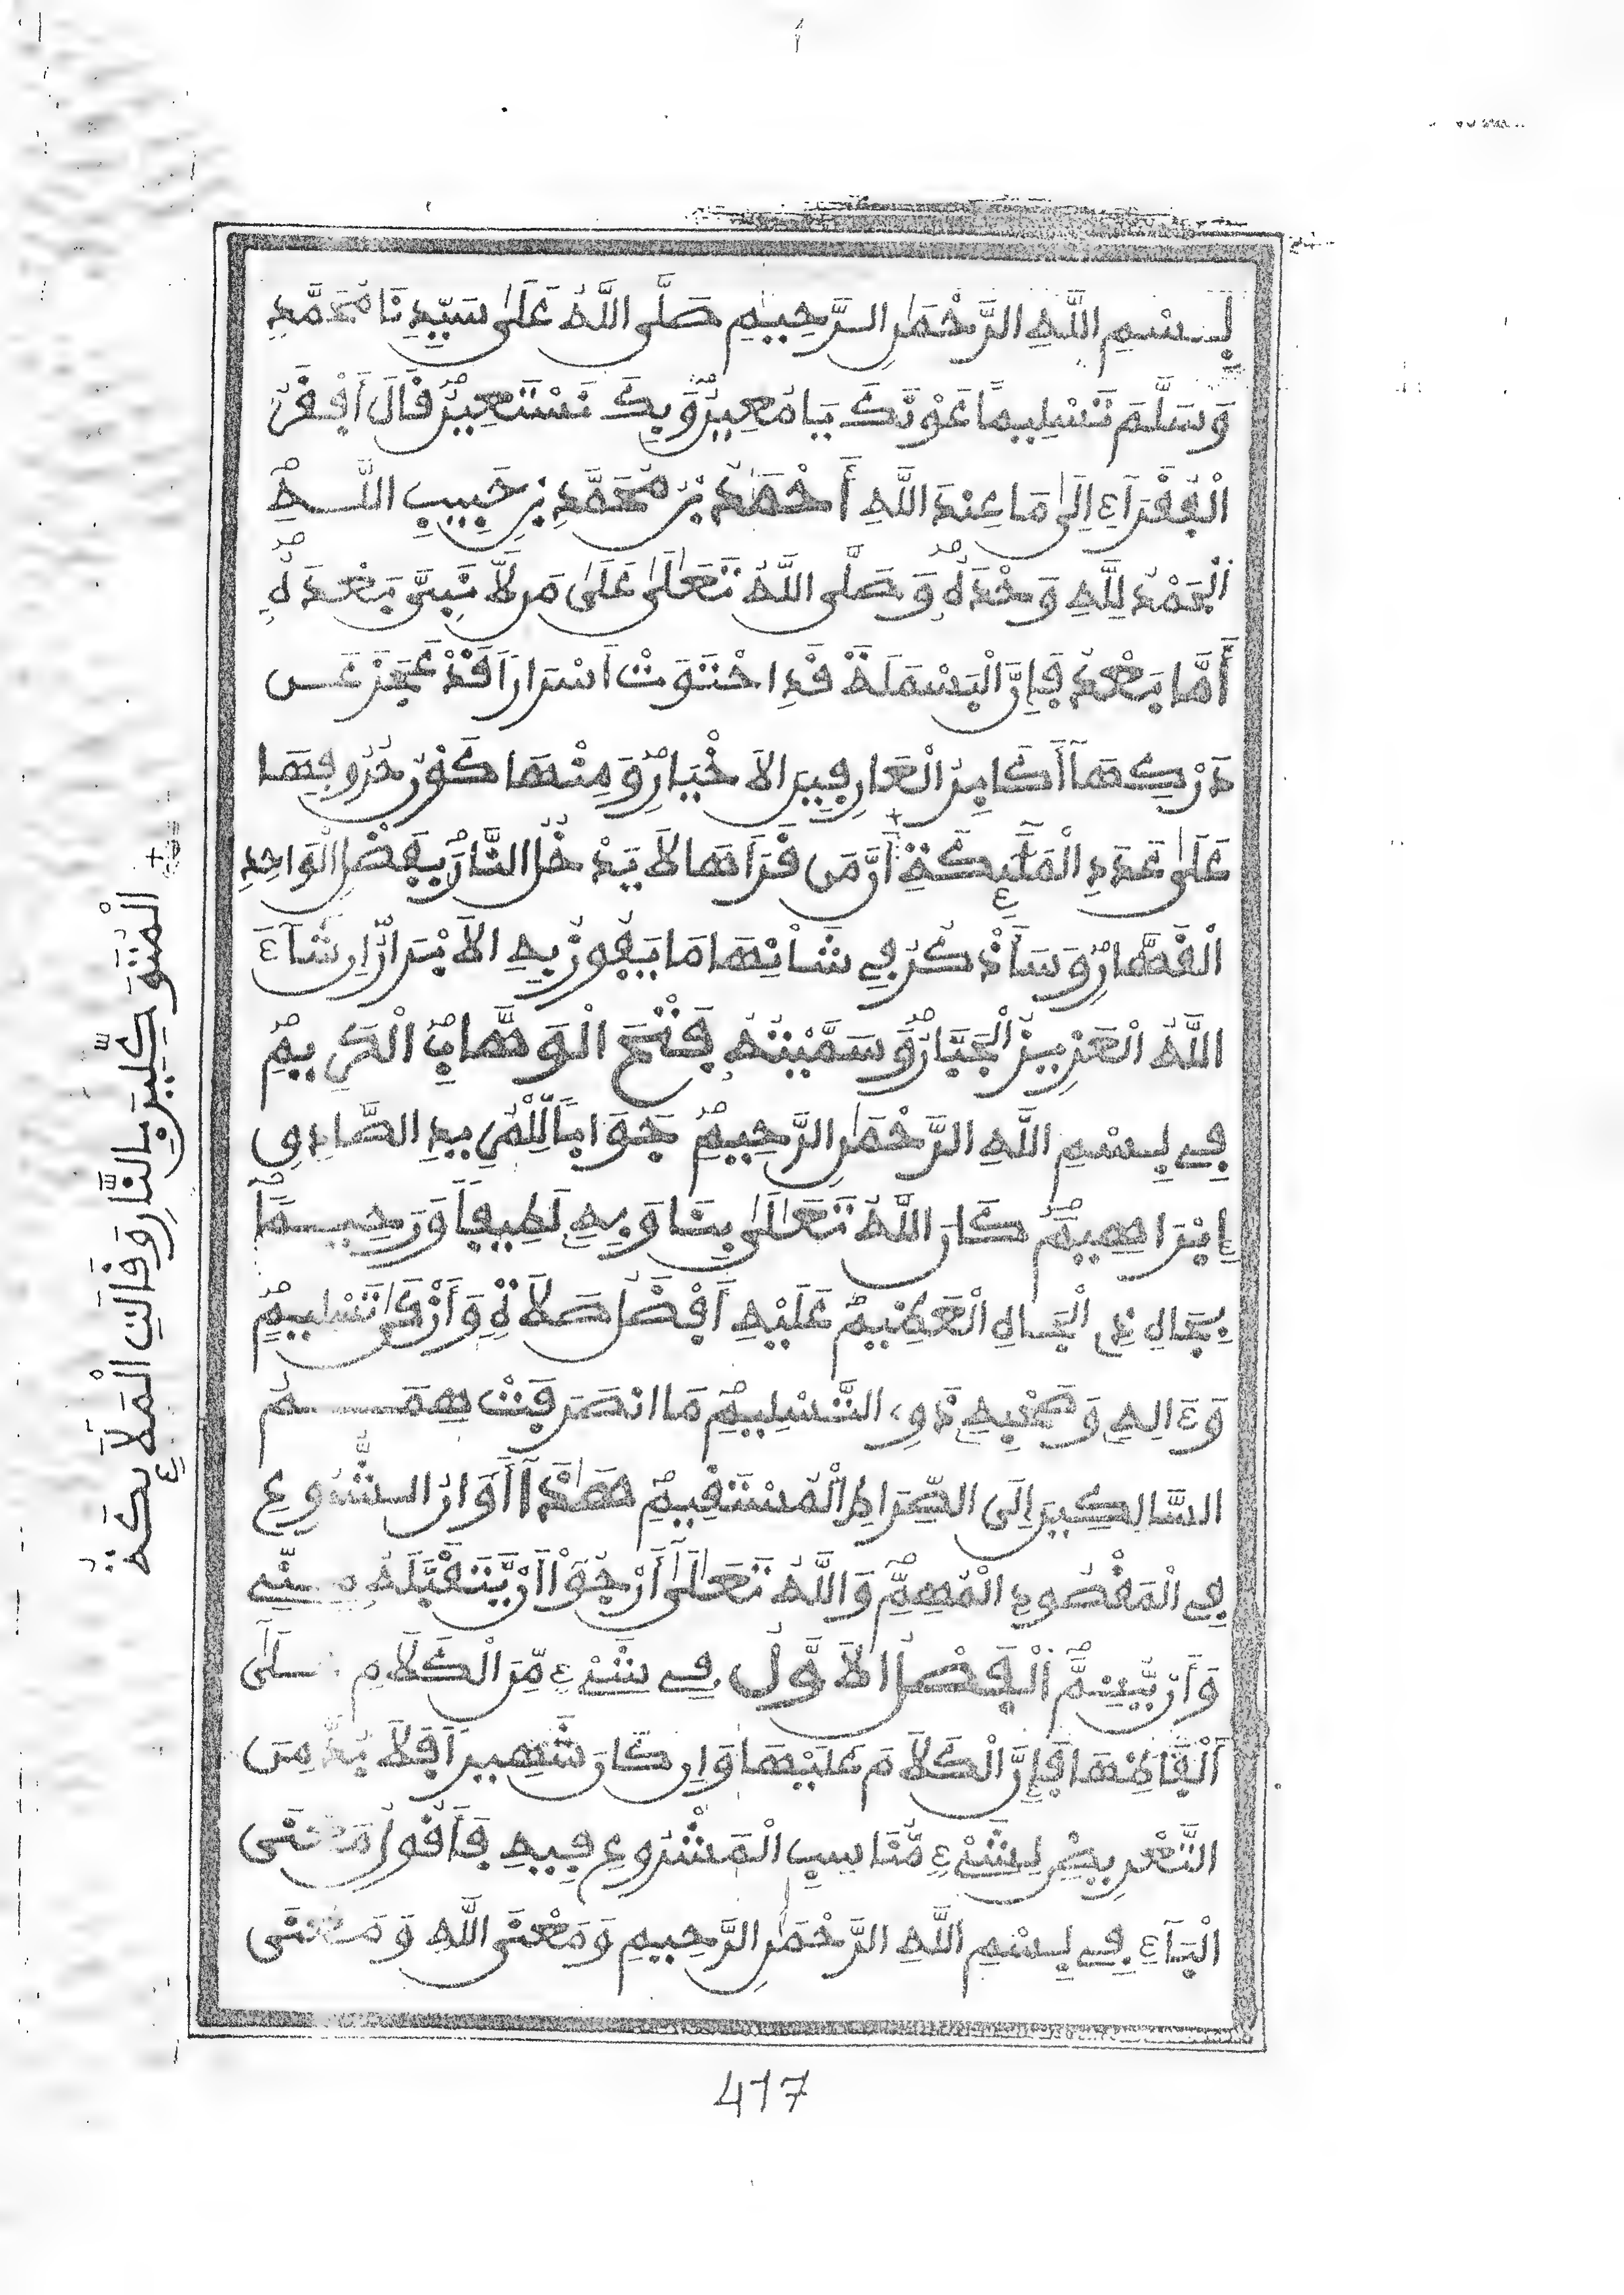 بِسْمِ اللَّهِ الرَّحْمَٰنِ الرَّحِيمِ صَلَّى اللَّهُ عَلَىٰ سَيِّدِنَا مُحَمَّدٍ
وَسَلَّمَ تَسْلِيمًا عَوْنَكَ يَا مُعِينُ وَبِكَ نَسْتَعِينُ قَالَ أَفْقَرُ
الْفُقَرَاءِ اِلَىٰ مَا عِندَ اللَّهِ أَحْمَدُ بْنُ مُحَمَّدِ بْنِ حَبِيبِ اللَّهِ
اَلْحَمْدُ لِلَّهِ وَحْدَهُ وَصَلَّى اللَّهُ تَعَالَىٰ عَلَىٰ مَن لَّا نَبِيَّ بَعْدَهُ
أَمَّا بَعْدُ فَإِنَّ الْبَسْمَلَةَ قَدِ احْتَوَتْ اَسْرَارًا قَدْ عَجَزَ عَن
دَرْكِهَا أَكَابِرُ الْعَارِفِينَ الَاخْيَارِ وَمِنْهَا كَوْنُ حُرُوفِهَا
عَلَىٰ عَدَدِ الْمَلَٰٓئِكَةِ + أَنَّ مَن قَرَأَهَا لَا يَدْخُلُ النَّارَ بِفَضْلِ الْوَاحِدِ
الْقَهَّارِ وَسَأَذْكُرُ فِي شَأْنِهَا مَا يَفُوزُ بِهِ الَابْرَارُ إِن شَاءَ
اللَّهُ الْعَزِيزُ الْجَبَّارُ وَسَمَّيْتُهُ فَتْحَ الْوَهَّابِ الْكَرِيمِ
فِي بِسْمِ اللَّهِ الرَّحْمَٰنِ الرَّحِيمِ جَوَابًا لِّلْمُرِيدِ الصَّادِقِ
إِبْرَاهِيمَ كَانَ اللَّهُ تَعَالَىٰ بِنَا وَبِهِ لَطِيفًا وَرَحِيمًا
بِجَاهِ ذِي الْجَاهِ الْعَظِيمِ عَلَيْهِ أَفْضَلُ صَلَاةٍ وَأَزْكَىٰ تَسْلِيمٍ
وَءَالِهِ وَصَحْبِهِ ذَوِي التَّسْلِيمِ مَا انصَرَفَتْ هِمَمُ
السَّالِكِينَ اِلَى الصِّرَاطِ الْمُسْتَقِيمِ هَٰذَا أَوَانُ الشُّرُوعِ
فِي الْمَقْصُودِ الْمُهِمِّ وَاللَّهَ تَعَالَىٰ أَرْجُو أَن يَّتَقَبَّلَهُ مِنِّي
وَأَن يُّتِمَّ الْفَصْلُ الَاوَّلُ فِي شَيْءٍ مِّنَ الْكَلَامِ عَلَىٰ
أَلْفَاظِهَا فَإِنَّ الْكَلَامَ عَلَيْهَا وَإِن كَانَ شَهِيرًا فَلَا بُدَّ مِنَ
التَّعْرِيضِ لِشَيْءٍ مُّنَاسِبِ الْمَشْرُوعِ فِيهِ فَأَقُولُ مَعْنَى
الْبَاءِ فِي بِسْمِ اللَّهِ الرَّحْمَٰنِ الرَّحِيمِ وَمَعْنَى اللَّهِ وَمَعْنَى
417
+ الْمُتَوَكِّلِينَ بِالنَّارِ وَقَالَتِ الْمَلَآئِكَةُ